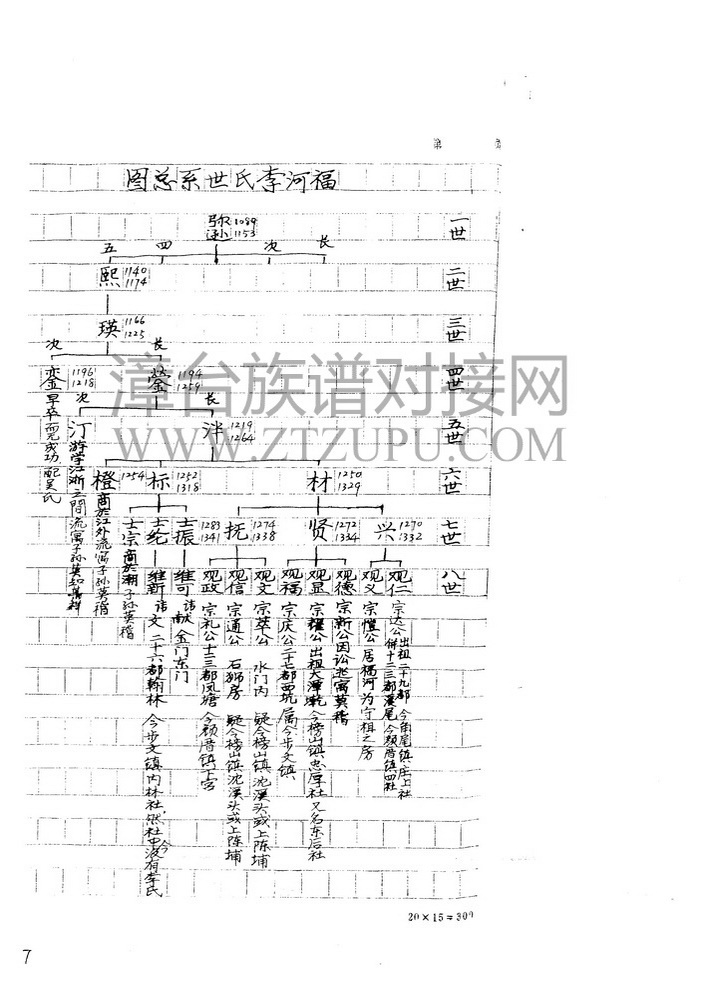 第 页
福河李氏世系总图
一世
弥逊 1089 1153
长 次 四 五
二世
熙 1140 1174
三世
瑛 1166 1225
长 次
四世
蓥 1194 1259
銮 1196 1218 早卒而无成功 配吴氏
长 次
五世
泮 1219 1264
汀 游学江浙之间流寓子孙莫知
六世
材 1250 1329
标 1252 1318
橙 1254 商于江外流寓子孙莫稽
七世
兴 1270 1332
贤 1272 1334
抚 1274 1338
1283 1341
士振
士纶
士宗 商于潮 子孙莫稽
八世
观仁 宗达公 出祖二十九都 今角尾镇庄上社 併十三都溪尾 今颜厝镇四社
观义 宗恺公 居福河为守祖之房
观德 宗新公因讼逃寓莫稽
观显 宗耀公 出祖大潭墘 今榜山镇忠厚社又名东后社
观福 宗庆公 二十七都西坑 属今步文镇
观文 宗萃公 水门内 疑今榜山镇沈溪头或上陈埔
观信 宗通公 石狮房 疑今榜山镇沈溪头或上陈埔
观政 宗礼公 十三都凤塘 今颜厝镇下宫
维可 讳献 金门东门
维新 讳文 二十六都翰林 今步文镇内林社,然社中今没有李氏
20×15=300
7
漳台族谱对接网
WWW.ZTZUPU.COM